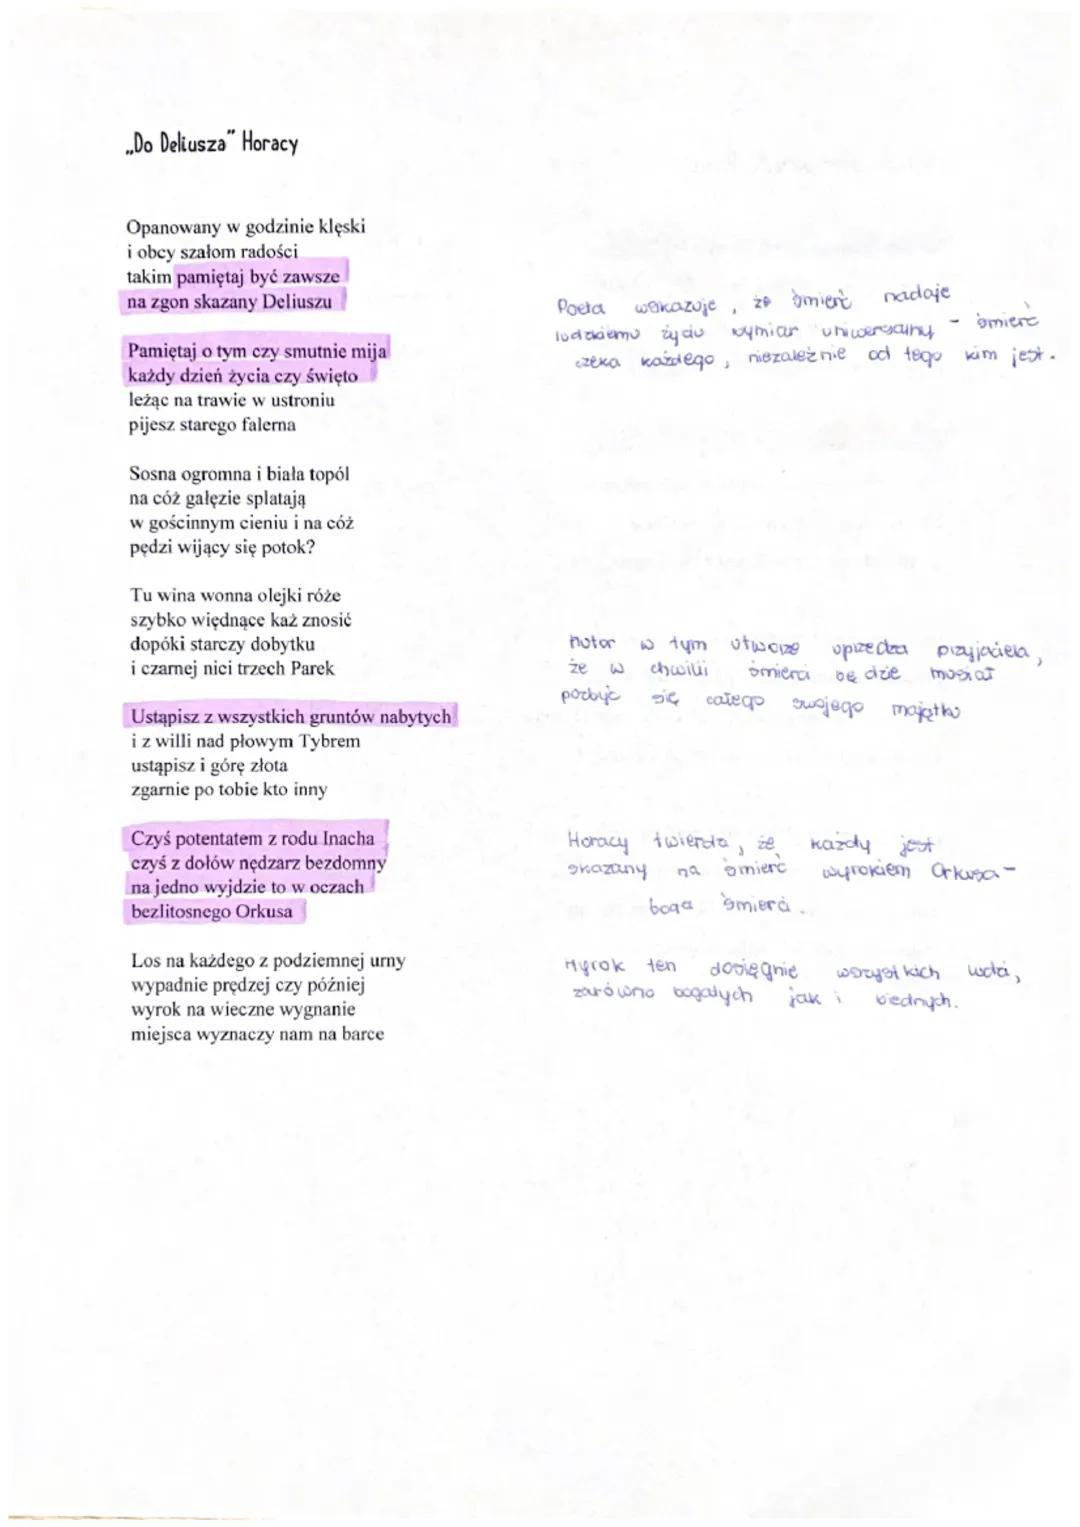 „Do Deliusza" Horacy
Opanowany w godzinie klęski
i obcy szałom radości
takim pamiętaj być zawsze
na zgon skazany Deliuszu
Poeta wskazuje, że śmierć nadaje
ludzkiemu życiu wymiar uniwersalny - śmierć
czeka każdego, niezależnie od tego kim jest.
Pamiętaj o tym czy smutnie mija
każdy dzień życia czy święto
leżąc na trawie w ustroniu
pijesz starego falerna
Sosna ogromna i biała topól
na cóż gałęzie splatają
w gościnnym cieniu i na cóż
pędzi wijący się potok?
Tu wina wonna olejki róże
szybko więdnące każ znosić
dopóki starczy dobytku
i czarnej nici trzech Parek
Autor w tym utworze uprzedza przyjaciela,
że w chwili śmierci będzie musiał
pozbyć się całego swojego majątku
Ustąpisz z wszystkich gruntów nabytych
i z willi nad płowym Tybrem
ustąpisz i górę złota
zgarnie po tobie kto inny
Czyś potentatem z rodu Inacha
czyś z dołów nędzarz bezdomny
na jedno wyjdzie to w oczach
bezlitosnego Orkusa
Horacy twierdzi, że każdy jest
skazany na śmierć wyrokiem Orkusa -
boga śmierci.
Los na każdego z podziemnej urny
wypadnie prędzej czy później
wyrok na wieczne wygnanie
miejsca wyznaczy nam na barce
Wyrok ten dosięgnie wszystkich ludzi,
zarówno bogatych jak i biednych.